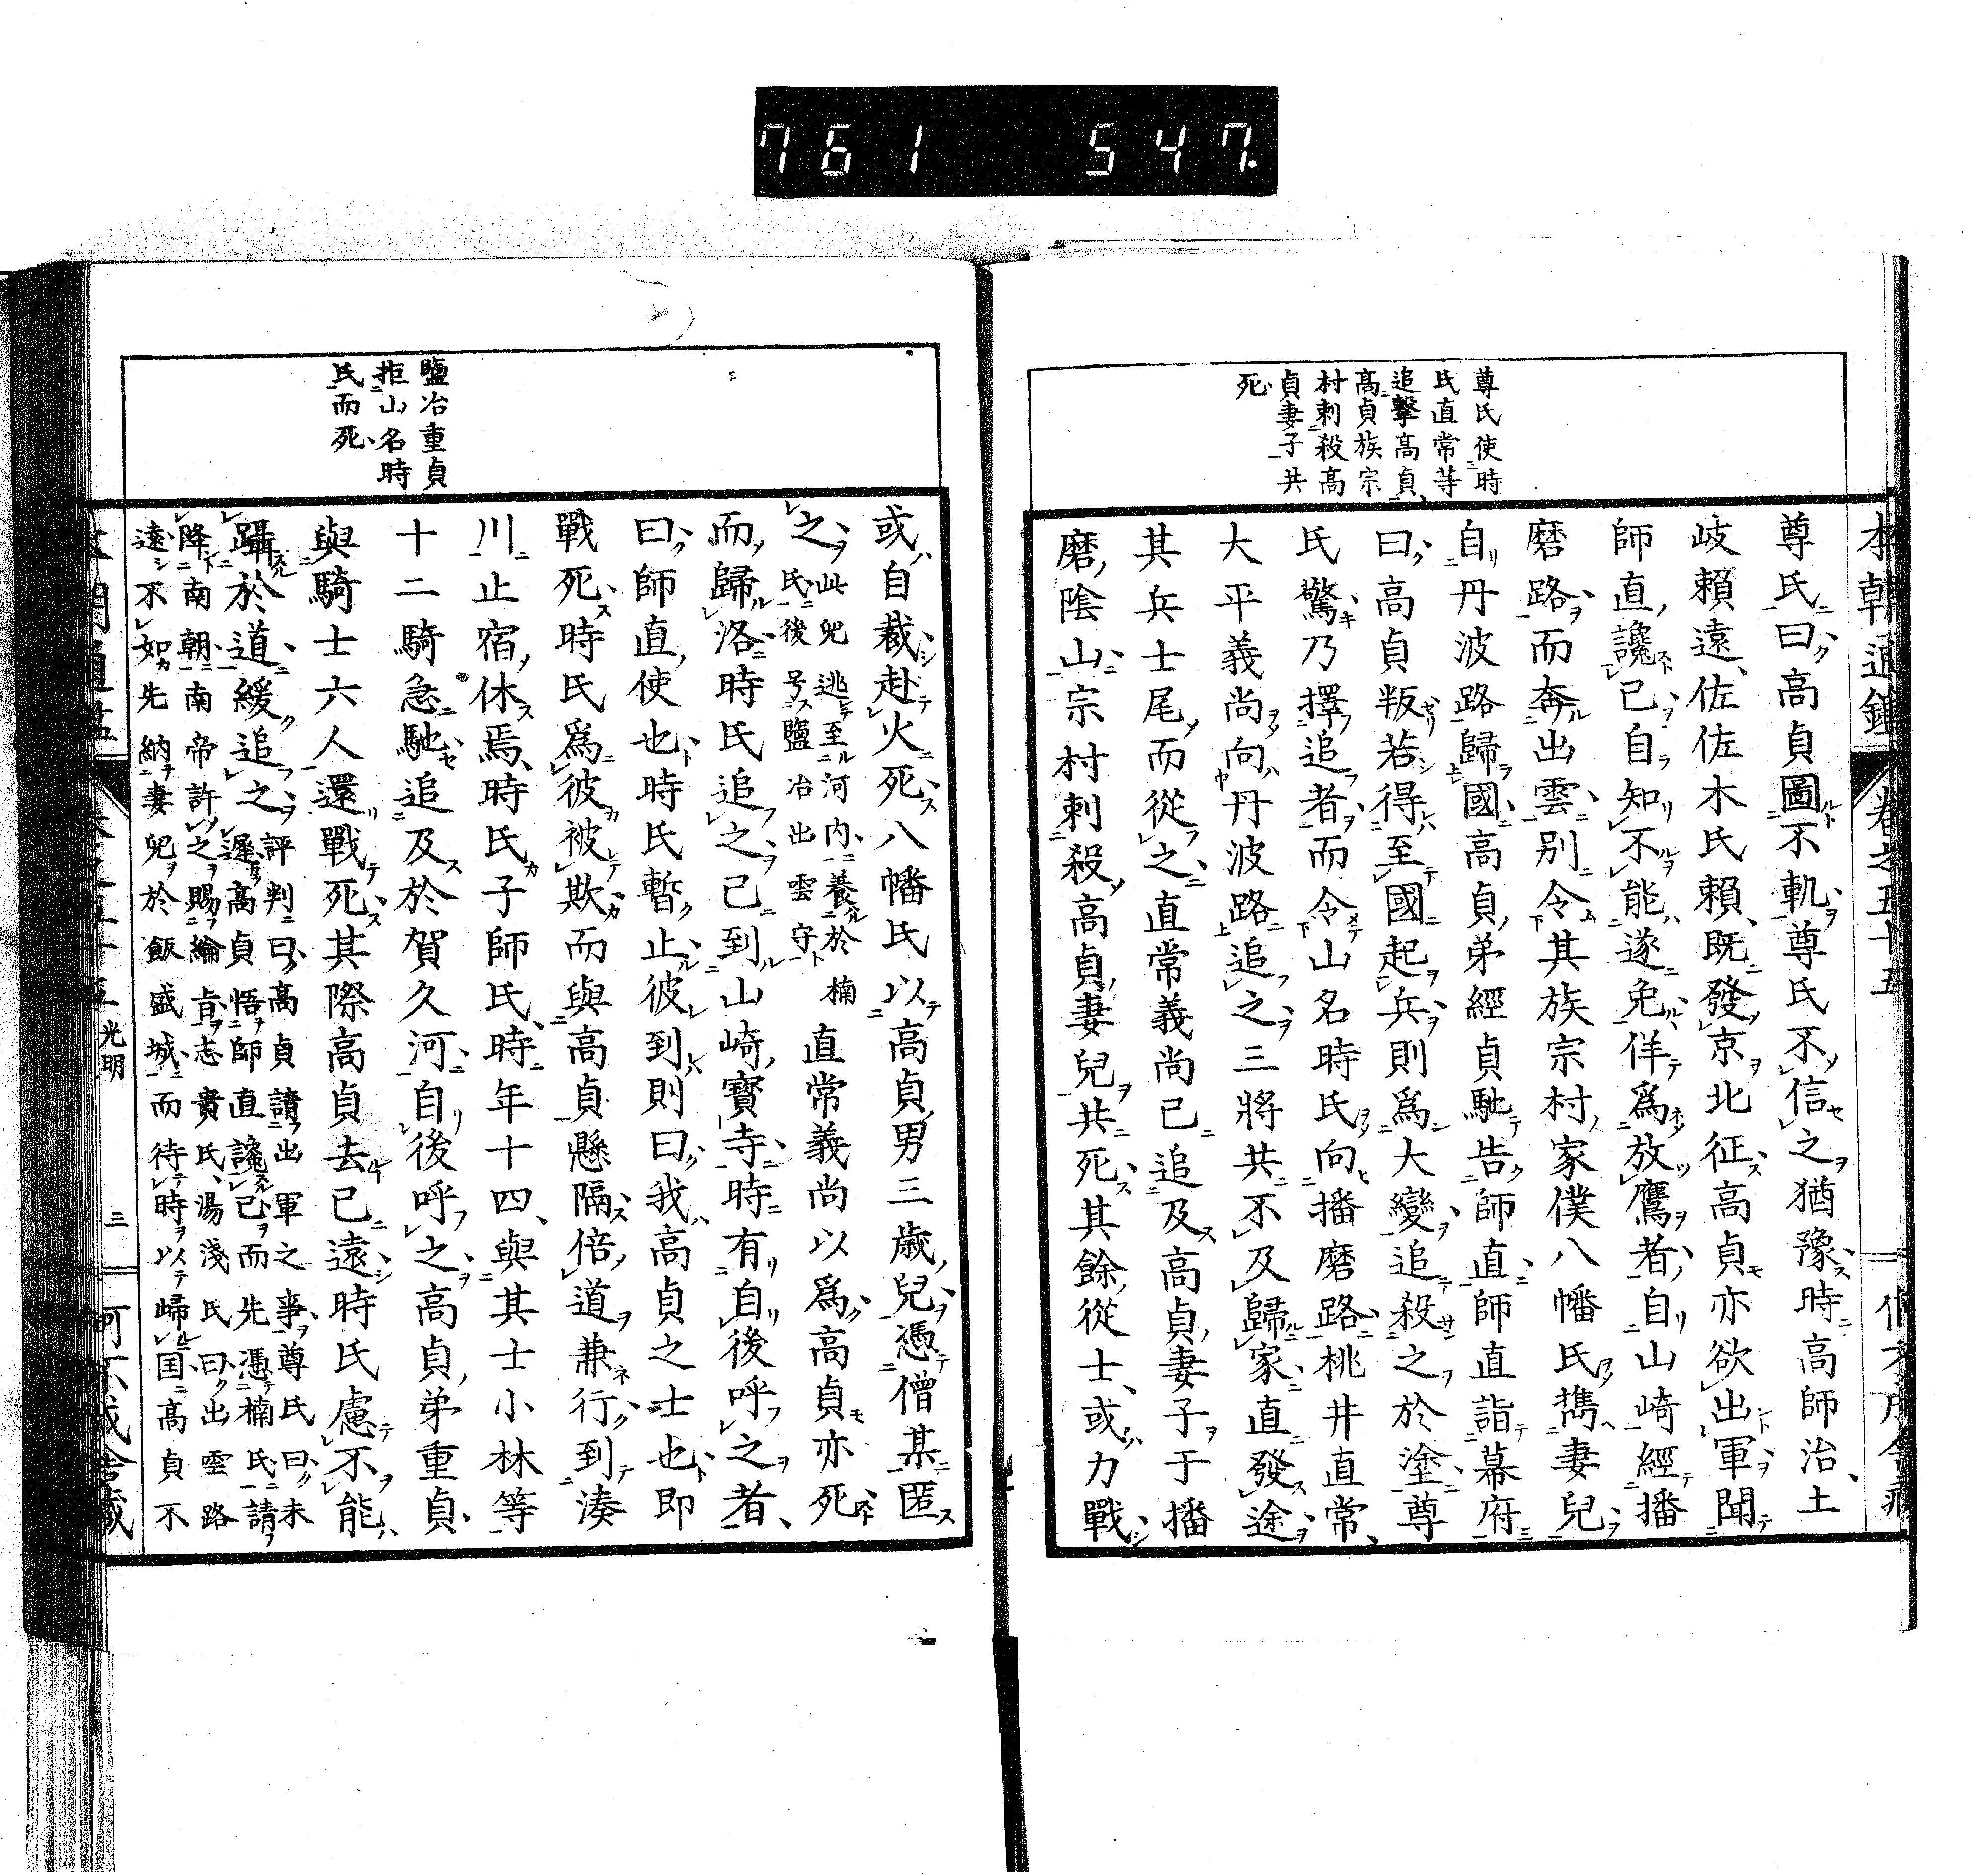 761 547.
本朝通鑑 卷之五十五
尊氏使時
氏直常等
追擊高貞
高貞族宗
村刺殺高
貞妻子共
死
尊氏曰高貞圖不軌尊氏不信之猶豫時高師治土
岐賴遠佐佐木氏賴既發京北征高貞亦欲出軍聞
師直讒己自知不能遂免佯爲放鷹者自山崎經播
磨路而奔出雲別令其族宗村家僕八幡氏攜妻兒
自丹波路歸國高貞弟經貞馳告師直師直詣幕府
曰高貞叛若得至國起兵則爲大變追殺之於塗尊
氏驚乃擇追者而令山名時氏向播磨路桃井直常
大平義尚向丹波路追之三將共不及歸家直發途
其兵士尾而從之直常義尚已追及高貞妻子于播
磨陰山宗村刺殺高貞妻兒共死其餘從士或力戰
鹽冶重貞
拒山名時
氏而死
或自裁赴火死八幡氏以高貞男三歲兒憑僧某匿
之此兒逃至河內養於楠
氏後号鹽冶出雲守直常義尚以爲高貞亦死
而歸洛時氏追之已到山崎寳寺時有自後呼之者
曰師直使也時氏暫止彼到則曰我高貞之士也即
戰死時氏爲彼被欺而與高貞懸隔倍道兼行到湊
川止宿休焉時氏子師氏時年十四與其士小林等
十二騎急馳追及於賀久河自後呼之高貞弟重貞
與騎士六人還戰死其際高貞去已遠時氏慮不能
躡於道緩追之評判曰高貞請出軍之事尊氏曰未
遲高貞悟師直讒己而先憑楠氏請
降南朝南帝許之賜綸旨志貴氏湯淺氏曰出雲路
遠不如先納妻兒於飯盛城而待時以歸国高貞不
光明 三